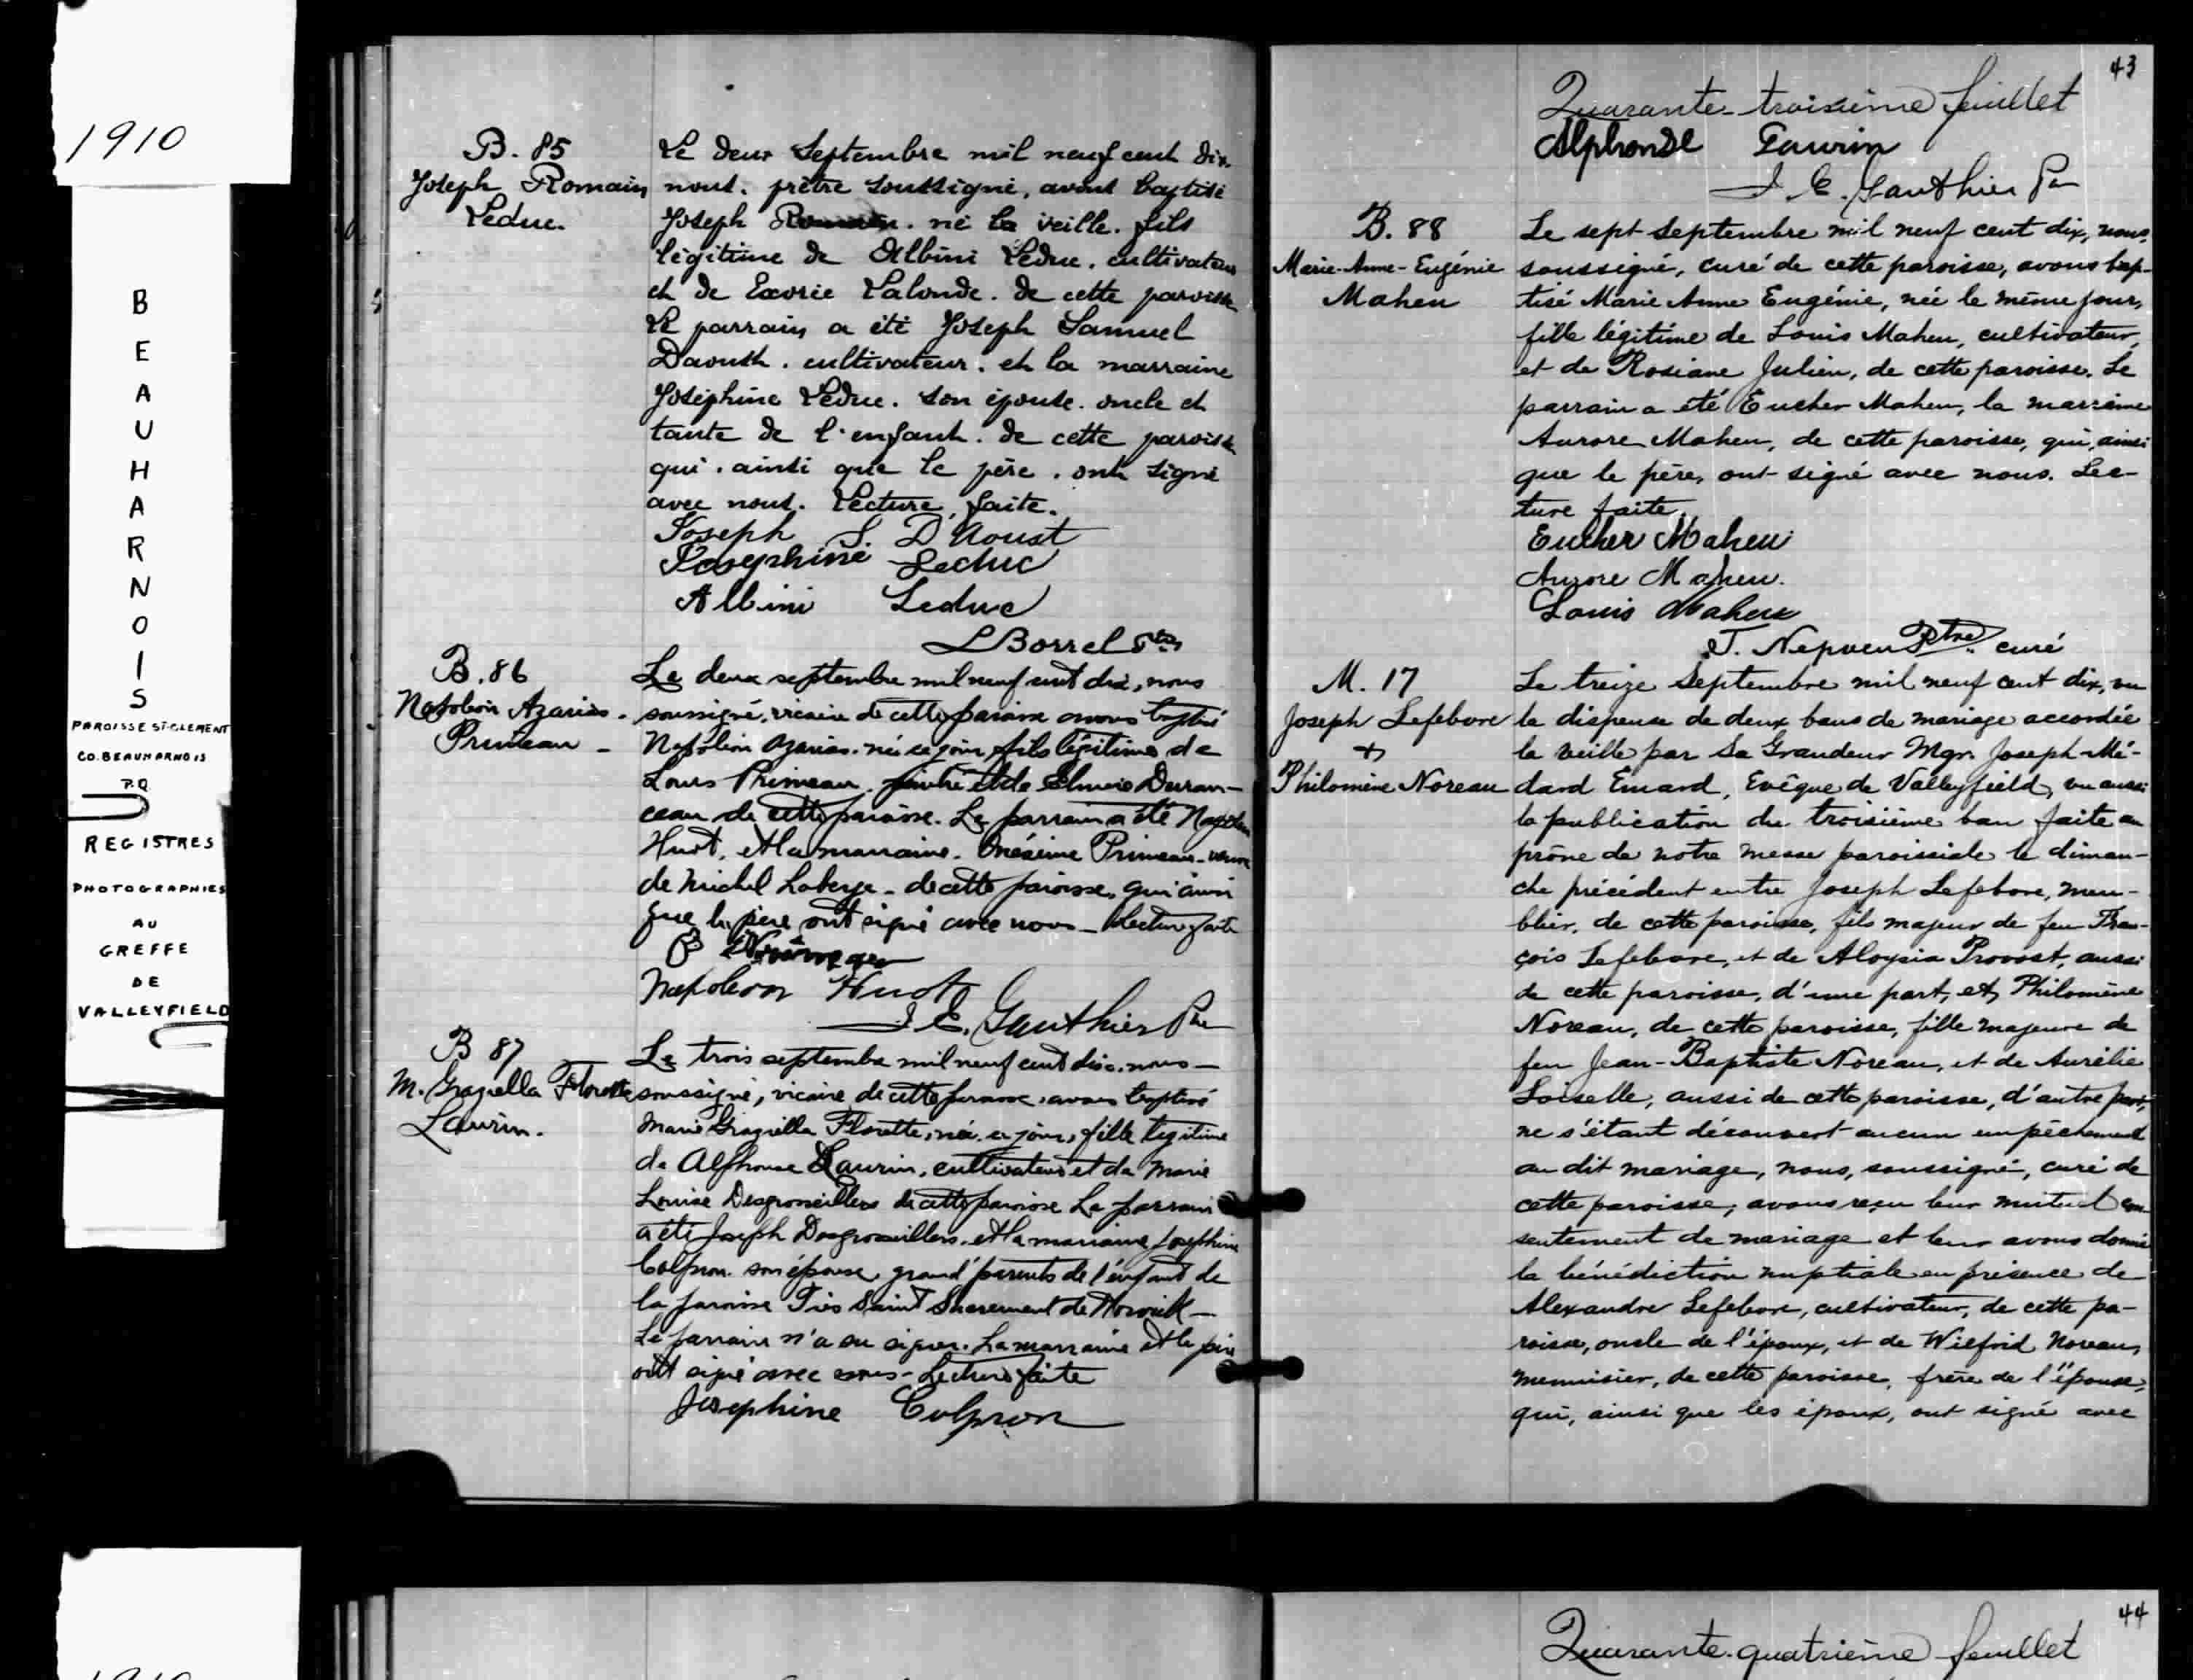 1910
B
E
A
U
H
A
R
N
O
I
S
PAROISSE ST-CLEMENT
CO. BEAUHARNOIS
P.Q.
REGISTRES
PHOTOGRAPHIES
AU
GREFFE
DE
VALLEYFIELD
B. 85
Joseph Romain
Leduc.
Le deux Septembre mil neuf cent dix.
nous. prêtre soussigné, avons baptisé
Joseph Romain. né la veille. fils
légitime de Albini Leduc. cultivateur
et de Exorie Lalonde. de cette paroisse
Le parrain a été Joseph Samuel
Daoust. cultivateur. et la marraine
Joséphine Leduc. son épouse. oncle et
tante de l'enfant. de cette paroisse
qui. ainsi que le père. ont signé
avec nous. Lecture faite.
Joseph S. D'Aoust
Josephine Leduc
Albini Leduc
L Borrel Ptre
B. 86
Napoléon Azarias.
Primeau -
Le deux septembre mil neuf cent dix, nous
soussigné, vicaire de cette paroisse avons baptisé
Napoléon Azarias. né ce jour, fils légitime de
Louis Primeau, et de Duran-
ceau de cette paroisse. Le parrain a été Napoléon
Huot, et la marraine. Onésime Primeau - veuve
de Michel Laberge - de cette paroisse, qui ainsi
que le père ont signé avec nous - Lecture faite
Napoleon Huot
J. E. Gauthier Ptre
B 87
M. Graziella Florette
Laurin.
Le trois septembre mil neuf cent dix. nous -
soussigné, vicaire de cette paroisse, avons baptisé
Marie Graziella Florette, née ce jour, fille légitime
de Alphonse Laurin, cultivateur et de Marie
Louise Desgroseillers de cette paroisse Le parrain
a été Joseph Desgroseillers. et la marraine Josephine
Colpron. son épouse, grand'parents de l'enfant de
la paroisse Très Saint Sacrement de Howick -
Le parrain n'a su signer. La marraine et le père
ont signé avec nous - Lecture faite
Josephine Colpron
43
Quarante-troisième feuillet
Alphonse Laurin
J. E. Gauthier Ptre
B. 88
Marie-Anne-Eugénie
Maheu
Le sept septembre mil neuf cent dix, nous,
soussigné, curé de cette paroisse, avons bap-
tisé Marie Anne Eugénie, née le même jour,
fille légitime de Louis Maheu, cultivateur,
et de Rosiane Julien, de cette paroisse. Le
parrain a été Eucher Maheu, la marraine
Aurore Maheu, de cette paroisse, qui, ainsi
que le père, ont signé avec nous. Lec-
ture faite.
Eucher Maheu
Aurore Maheu.
Louis Maheu
J. Nepveu Ptre. curé
M. 17
Joseph Lefebvre
+
Philomène Noreau
Le treize Septembre mil neuf cent dix, vu
la dispense de deux bans de mariage accordée
la veille par Sa Grandeur Mgr. Joseph-Mé-
dard Emard, Evêque de Valleyfield, vu aussi
la publication du troisième ban faite au
prône de notre messe paroissiale le diman-
che précédent entre Joseph Lefebvre, meu-
blier, de cette paroisse, fils majeur de feu Fran-
çois Lefebvre, et de Aloysia Provost, aussi
de cette paroisse, d'une part, et, Philomène
Noreau, de cette paroisse, fille majeure de
feu Jean-Baptiste Noreau, et de Aurélie
Loiselle, aussi de cette paroisse, d'autre part,
ne s'étant découvert aucun empêchement
au dit mariage, nous, soussigné, curé de
cette paroisse, avons reçu leur mutuel con-
sentement de mariage et leur avons donné
la bénédiction nuptiale en présence de
Alexandre Lefebvre, cultivateur, de cette pa-
roisse, oncle de l'époux, et de Wilfrid Noreau,
menuisier, de cette paroisse, frère de l'épouse,
qui, ainsi que les époux, ont signé avec
44
Quarante-quatrième feuillet